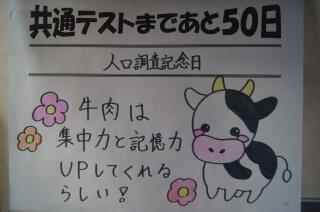 共通テストまであと50日
人口調査記念日
牛肉は
集中力と記憶力
UPしてくれる
らしい!